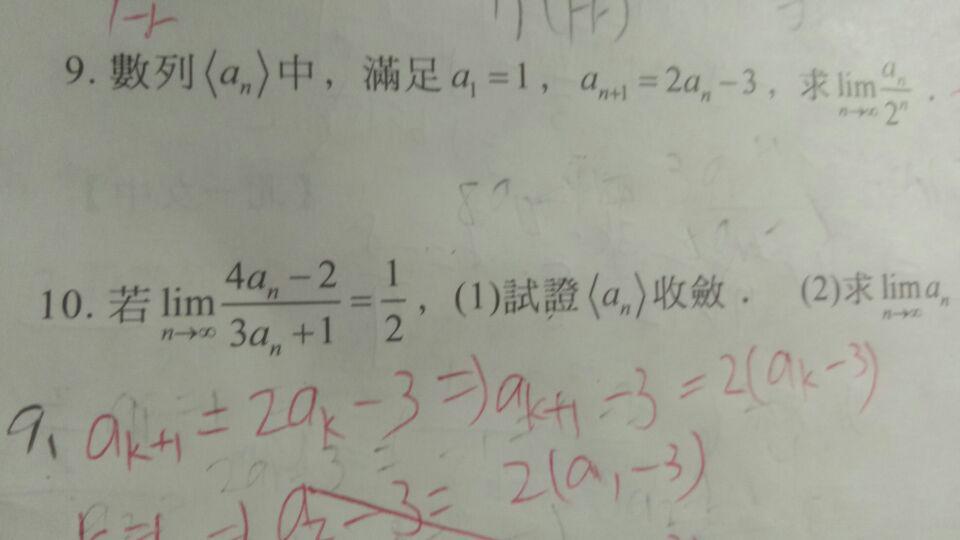 9. 數列⟨aₙ⟩中，滿足 a₁=1，aₙ₊₁=2aₙ−3，求 lim_{n→∞} aₙ/2ⁿ．
10. 若 lim_{n→∞} (4aₙ−2)/(3aₙ+1) = 1/2，(1)試證⟨aₙ⟩收斂． (2)求 lim_{n→∞} aₙ
9. a_{k+1} = 2a_k − 3 ⇒ a_{k+1} − 3 = 2(a_k − 3)
a₂ − 3 = 2(a₁ − 3)